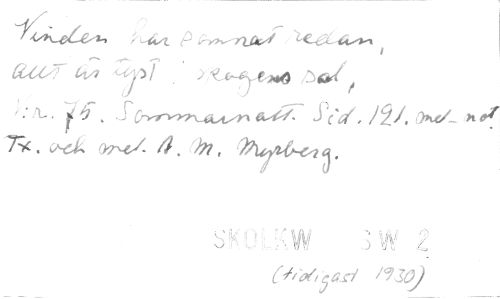 Vinden har somnat redan,
allt är tyst i skogens sal,
Nr. 75. Sommarnatt. Sid. 121. mel-not.
Tx. och mel. A. M. Myrberg.
SKOLKW SW 2
(tidigast 1930)